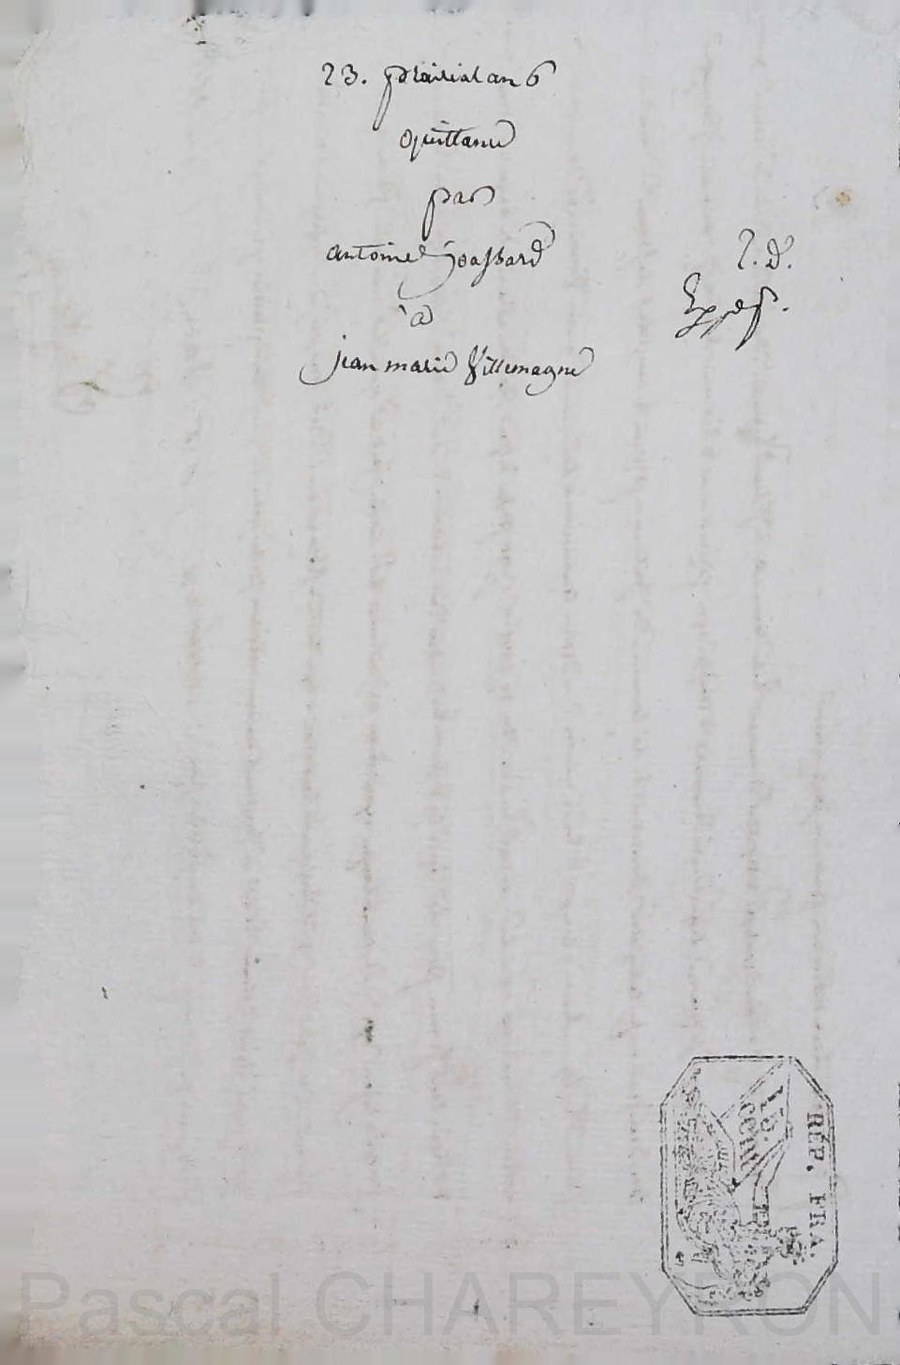 23. prairial an 6
quittance
par
antoine Joassard
à
jean marie Villemagne
2. d.
Exped.
RÉP. FRA.
75.
cent
Pascal CHAREYRON